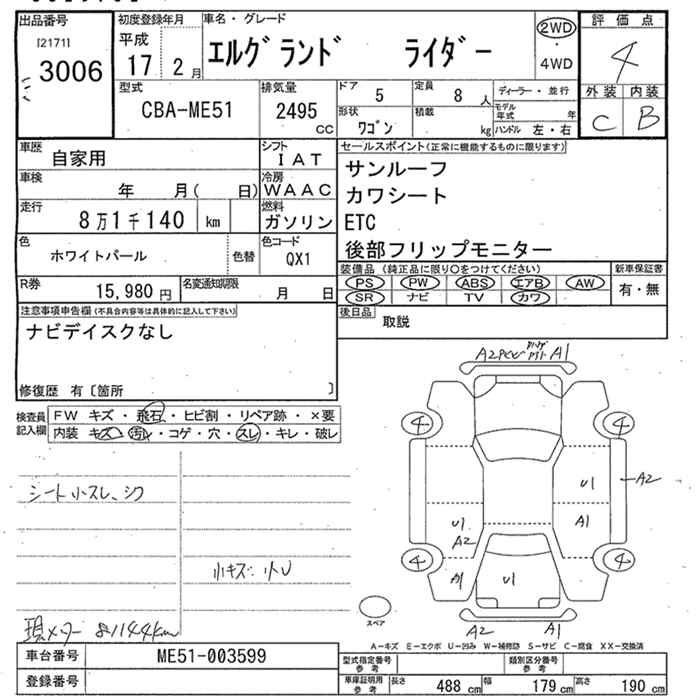 出品番号
[2171]
3006
初度登録年月
平成
17 2月
車名・グレード
エルグランド ライダー
2WD
・
4WD
評価点
4
外装 内装
C B
型式
CBA-ME51
排気量
2495
cc
ドア 5
定員 8 人
ディーラー・並行
形状 ワゴン
積載 kg
モデル年式 年
ハンドル 左・右
車歴 自家用
シフト IAT
車検 年 月( 日)
冷房 WAAC
走行 8万1千140 km
燃料 ガソリン
色 ホワイトパール
色替
色コード QX1
R券 15,980 円
名変通知期限 月 日
セールスポイント(正常に機能するものに限ります)
サンルーフ
カワシート
ETC
後部フリップモニター
装備品 (純正品に限り○をつけてください)
新車保証書
PS PW ABS エアB AW
SR ナビ TV カワ
有・無
注意事項申告欄 (不具合内容等は具体的に記入して下さい)
ナビデイスクなし
修復歴 有〔箇所 〕
後日品 取説
検査員記入欄
FW キズ・飛石・ヒビ割・リペア跡・×要
内装 キズ・汚れ・コゲ・穴・スレ・キレ・破レ
シート小スレ、シワ
小キズ・小U
現メーター 81144km
A1
4 4
U1 A2
U1 A1
A2
4 4
A1 U1
A2 A1
スペア
A-キズ E-エクボ U-凹み W-補修跡 S-サビ C-腐食 XX-交換済
車台番号 ME51-003599
登録番号
型式指定番号 参考
類別区分番号 参考
車庫証明用 参考
長さ 488 cm 幅 179 cm 高さ 190 cm